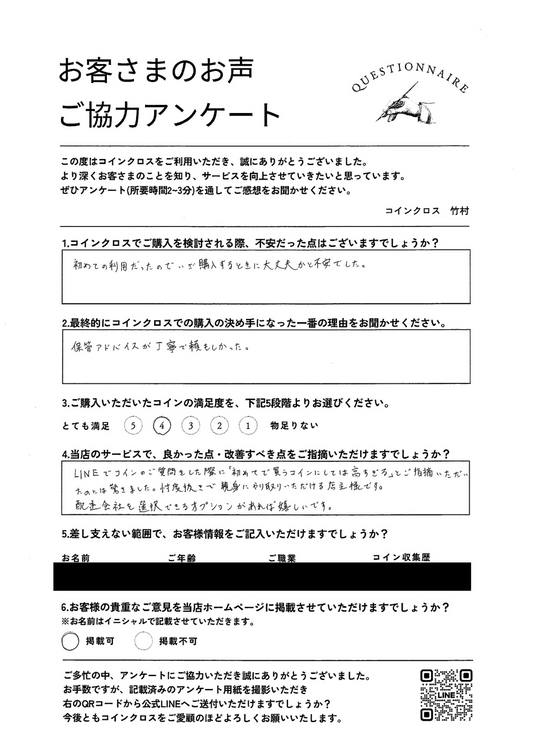 お客さまのお声
ご協力アンケート
QUESTIONNAIRE
この度はコインクロスをご利用いただき、誠にありがとうございました。
より深くお客さまのことを知り、サービスを向上させていきたいと思っています。
ぜひアンケート(所要時間2~3分)を通してご感想をお聞かせください。
コインクロス 竹村
1.コインクロスでご購入を検討される際、不安だった点はございますでしょうか?
初めての利用だったのでいざ購入するときに大丈夫かと不安でした。
2.最終的にコインクロスでの購入の決め手になった一番の理由をお聞かせください。
保管アドバイスが丁寧で頼もしかった。
3.ご購入いただいたコインの満足度を、下記5段階よりお選びください。
とても満足 5 4 3 2 1 物足りない
4.当店のサービスで、良かった点・改善すべき点をご指摘いただけますでしょうか?
LINEでコインのご質問をした際に「初めてで買うコインにしては高すぎる」とご指摘いただい
たのには驚きました。忖度抜きで親身にやり取りいただける店主様です。
配送会社を選択できるオプションがあれば嬉しいです。
5.差し支えない範囲で、お客様情報をご記入いただけますでしょうか?
お名前 ご年齢 ご職業 コイン収集歴
6.お客様の貴重なご意見を当店ホームページに掲載させていただけますでしょうか?
※お名前はイニシャルで記載させていただきます。
掲載可 掲載不可
ご多忙の中、アンケートにご協力いただき誠にありがとうございました。
お手数ですが、記載済みのアンケート用紙を撮影いただき
右のQRコードから公式LINEへご送付いただけますでしょうか?
今後ともコインクロスをご愛顧のほどよろしくお願いいたします。
LINE